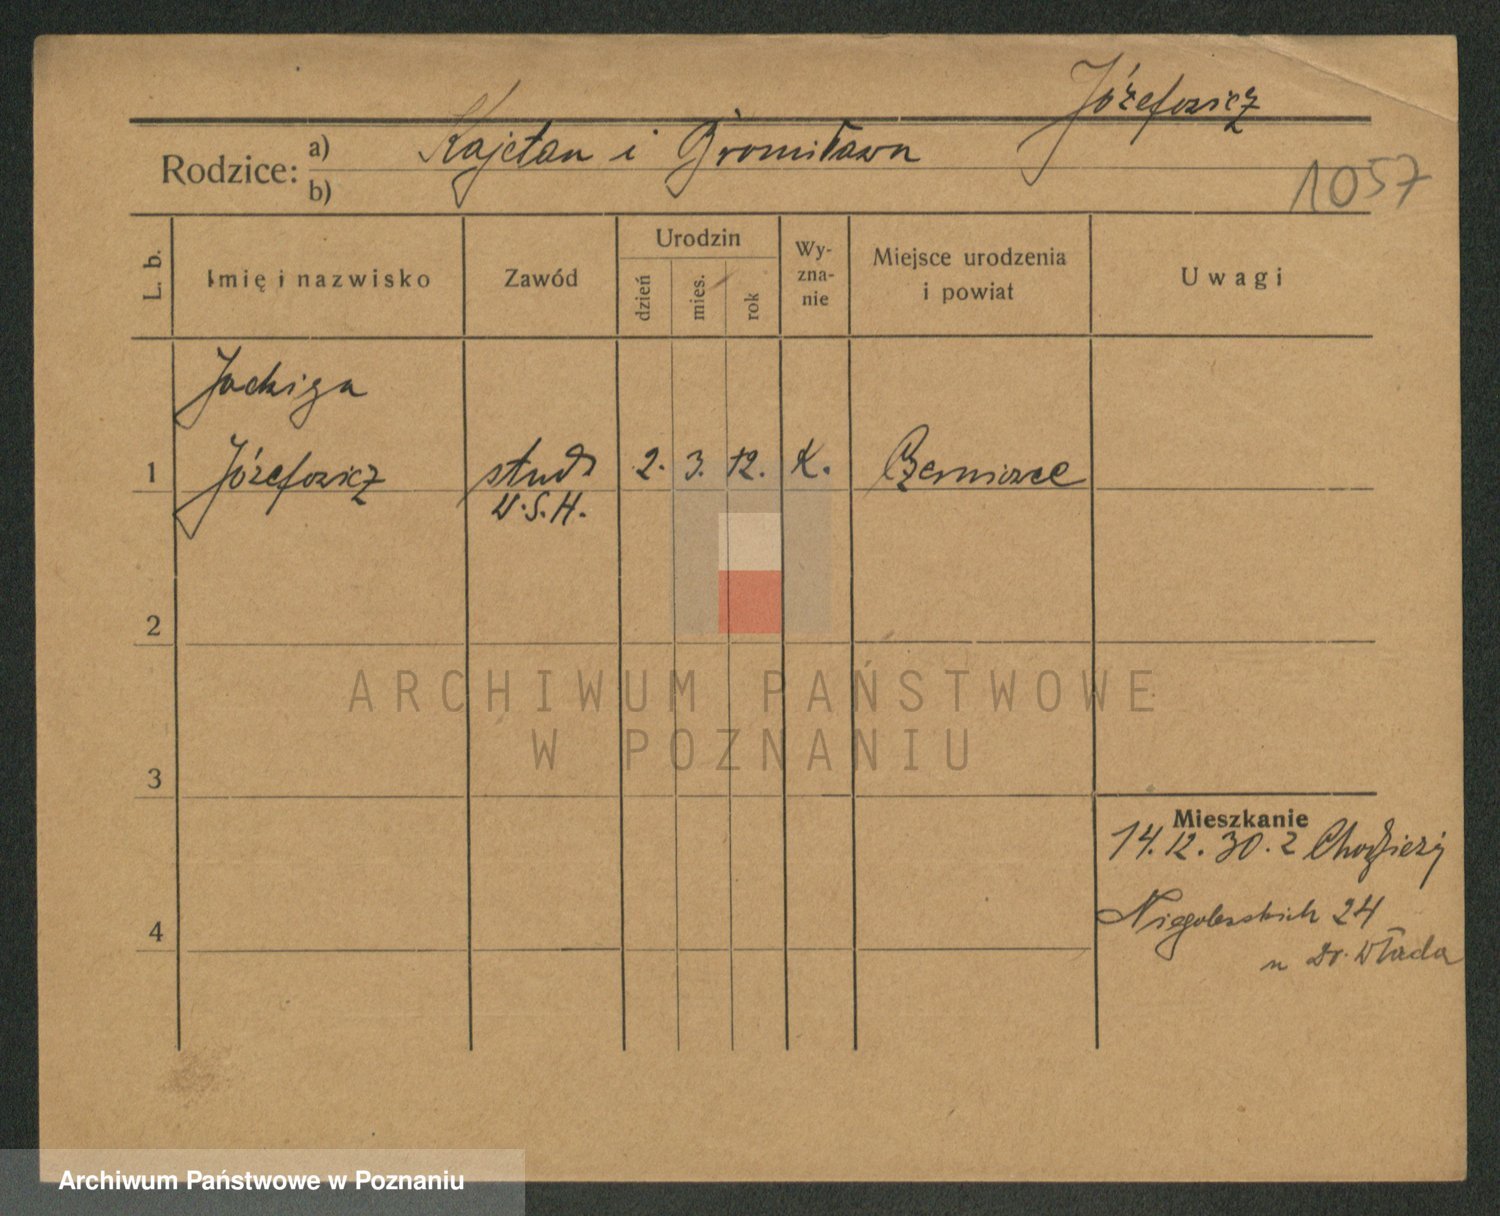 Józefowicz
Rodzice: a) Kajetan i Bromisława
b)
1057
L. b.
Imię i nazwisko
Zawód
Urodzin
dzień
mies.
rok
Wy-
zna-
nie
Miejsce urodzenia
i powiat
Uwagi
Jadwiga
1 Józefowicz stud. 2. 3. 12. K.
W.S.H.
2
3
4
Mieszkanie
14.12.30. z Chodzieży
Niegolewskich 24
u Dr. Włada
ARCHIWUM PAŃSTWOWE
W POZNANIU
Archiwum Państwowe w Poznaniu